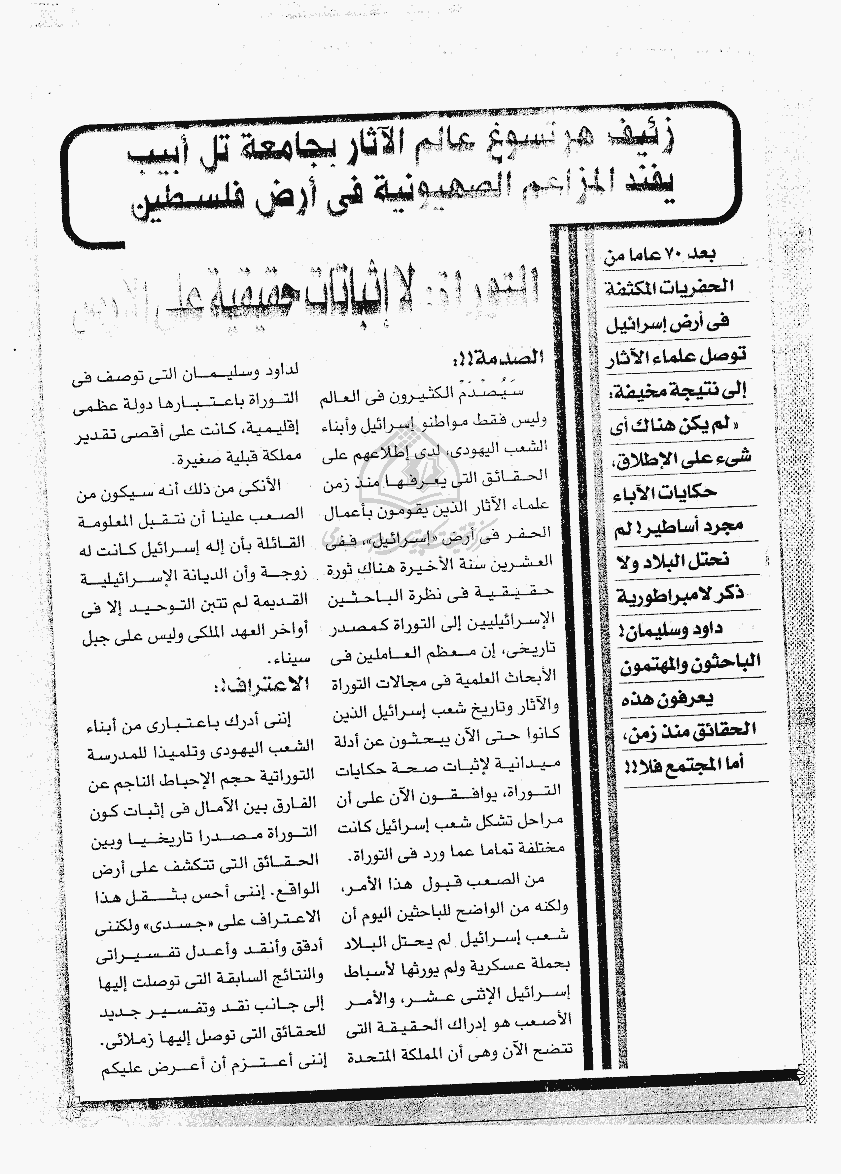 زئيف هرتسوغ عالم الآثار بجامعة تل أبيب
يفند المزاعم الصهيونية فى أرض فلسطين
بعد ٧٠ عاما من
الحفريات المكثفة
فى أرض إسرائيل
توصل علماء الآثار
إلى نتيجة مخيفة:
«لم يكن هناك أى
شىء على الإطلاق،
حكايات الآباء
مجرد أساطير! لم
نحتل البلاد ولا
ذكر لامبراطورية
داود وسليمان!
الباحثون والمهتمون
يعرفون هذه
الحقائق منذ زمن،
أما المجتمع فلا!!
التوراة: لا إثباتات حقيقية على الأرض
الصدمة!!:
سَيُصْدَمُ الكثيرون فى العالم
وليس فقط مواطنو إسرائيل وأبناء
الشعب اليهودى، لدى إطلاعهم على
الحقائق التى يعرفها منذ زمن
علماء الآثار الذين يقومون بأعمال
الحفر فى أرض «إسرائيل»، ففى
العشرين سنة الأخيرة هناك ثورة
حقيقية فى نظرة الباحثين
الإسرائيليين إلى التوراة كمصدر
تاريخى، إن معظم العاملين فى
الأبحاث العلمية فى مجالات التوراة
والآثار وتاريخ شعب إسرائيل الذين
كانوا حتى الآن يبحثون عن أدلة
ميدانية لإثبات صحة حكايات
التوراة، يوافقون الآن على أن
مراحل تشكل شعب إسرائيل كانت
مختلفة تماما عما ورد فى التوراة.
من الصعب قبول هذا الأمر،
ولكنه من الواضح للباحثين اليوم أن
شعب إسرائيل لم يحتل البلاد
بحملة عسكرية ولم يورثها لأسباط
إسرائيل الإثنى عشر، والأمر
الأصعب هو إدراك الحقيقة التى
تتضح الآن وهى أن المملكة المتحدة
لداود وسليمان التى توصف فى
التوراة باعتبارها دولة عظمى
إقليمية، كانت على أقصى تقدير
مملكة قبلية صغيرة.
الأنكى من ذلك أنه سيكون من
الصعب علينا أن نتقبل المعلومة
القائلة بأن إله إسرائيل كانت له
زوجة وأن الديانة الإسرائيلية
القديمة لم تتبن التوحيد إلا فى
أواخر العهد الملكى وليس على جبل
سيناء.
الاعتراف!:
إننى أدرك باعتبارى من أبناء
الشعب اليهودى وتلميذا للمدرسة
التوراتية حجم الإحباط الناجم عن
الفارق بين الآمال فى إثبات كون
التوراة مصدرا تاريخيا وبين
الحقائق التى تتكشف على أرض
الواقع. إننى أحس بثقل هذا
الاعتراف على «جسدى» ولكننى
أدقق وأنقد وأعدل تفسيراتى
والنتائج السابقة التى توصلت إليها
إلى جانب نقد وتفسير جديد
للحقائق التى توصل إليها زملائى.
إننى أعتزم أن أعرض عليكم